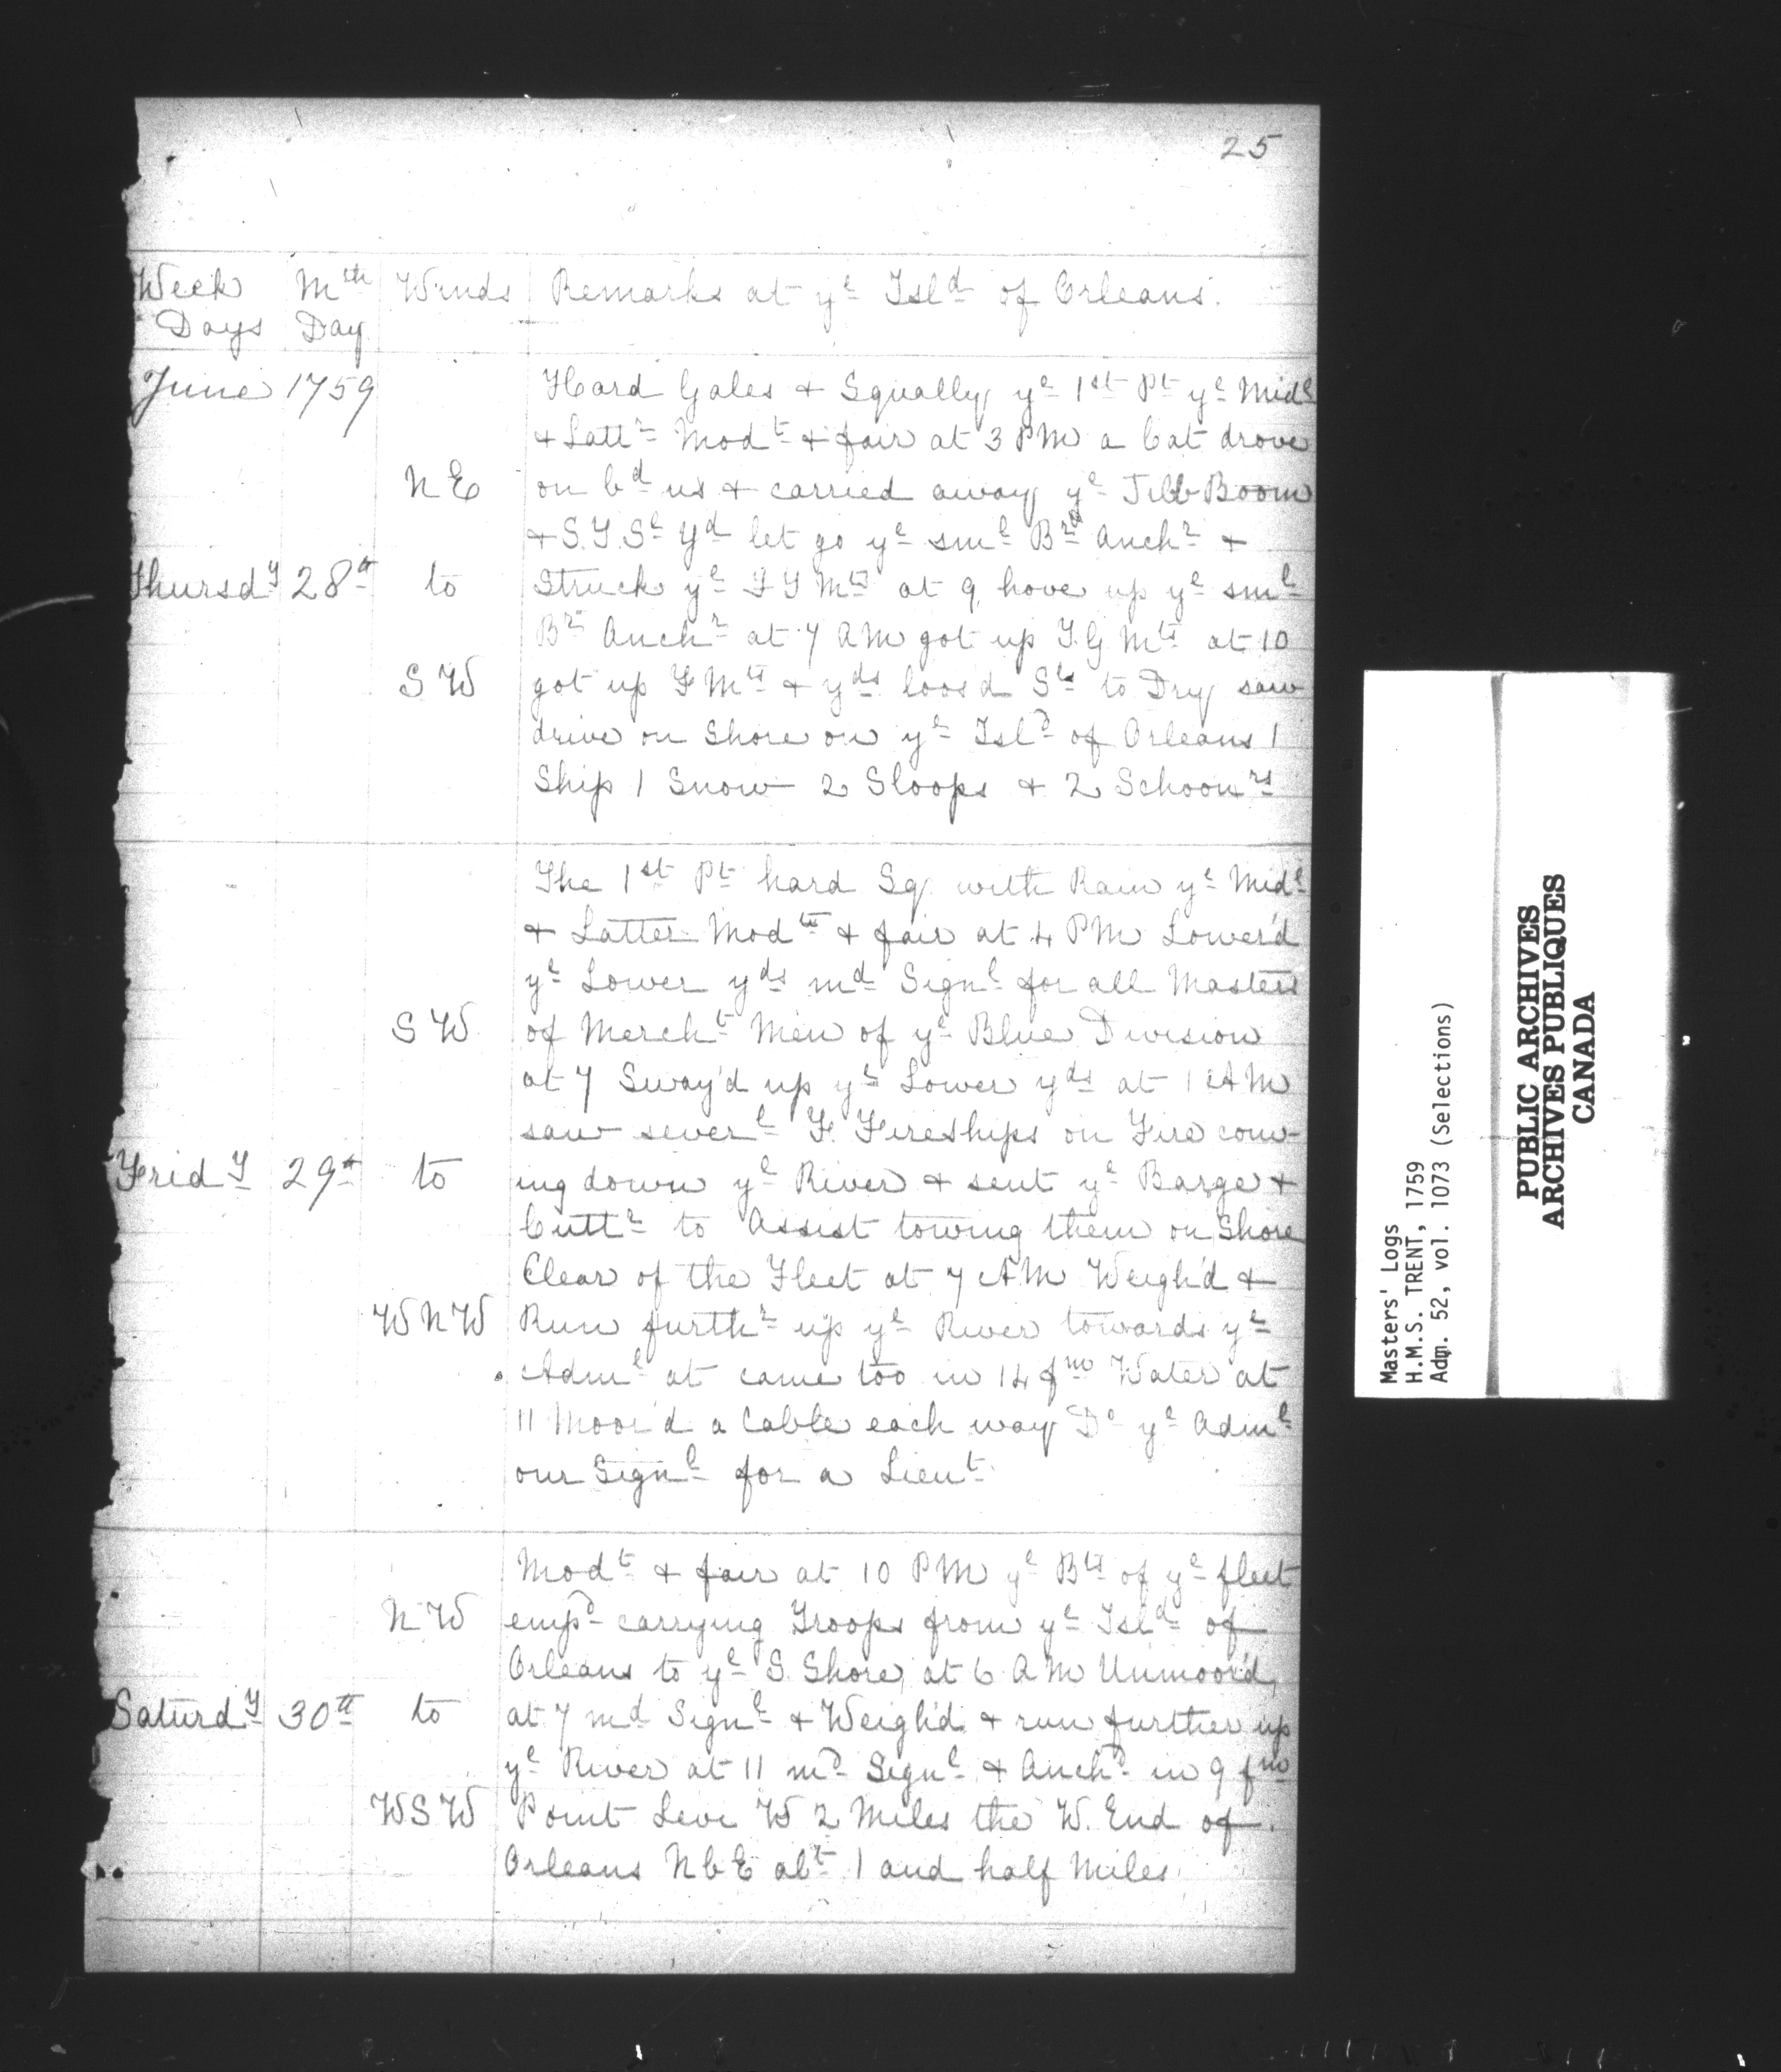 25
Week Mth Winds Remarks at ye Isld of Orleans.
Days Day
June 1759
Hard Gales & Squally ye 1st Pt ye Midl
& Lattr Modt & fair at 3 PM a Cat drove
N E on bd us & carried away ye Jibb Boom
& S.T.Sl Yd let go ye sml Br Anchr &
Thursdy 28th to Struck ye T Mts at 9 hove up ye sml
Br Anchr at 7 AM got up T.G Mts at 10
S W got up Mts & yds loosd Sls to Dry saw
drive on Shore on ye Isld of Orleans 1
Ship 1 Snow 2 Sloops & 2 Schoonrs
The 1st Pt hard Sq with Rain ye Midl
& Latter Modte & fair at 4 PM Lower'd
ye Lower yds md Signl for all Masters
S W of Mercht Men of ye Blue Division
at 7 Sway'd up ye Lower yds at 1 AM
saw severl F. Fireships on Fire com-
Fridy 29th to ing down ye River & sent ye Barge &
Cuttr to Assist towing them on Shore
Clear of the Fleet at 7 AM Weigh'd &
W N W Run furthr up ye River towards ye
Adml at came too in 14 fm Water at
11 Moor'd a Cable each way Do ye Adml
our Signl for a Lieut
Modt & fair at 10 PM ye Bts of ye fleet
N W empd carrying Troops from ye Isld of
Orleans to ye S. Shore, at 6 AM Unmoor'd,
Saturdy 30th to at 7 md Signl & Weigh'd & run further up
ye River at 11 md Signl & Anchd in 9 fm
W S W Point Levi W 2 Miles the W. End of
Orleans N b E abt 1 and half Miles
Masters' Logs
H.M.S. TRENT, 1759
Adm. 52, vol. 1073 (Selections)
PUBLIC ARCHIVES
ARCHIVES PUBLIQUES
CANADA